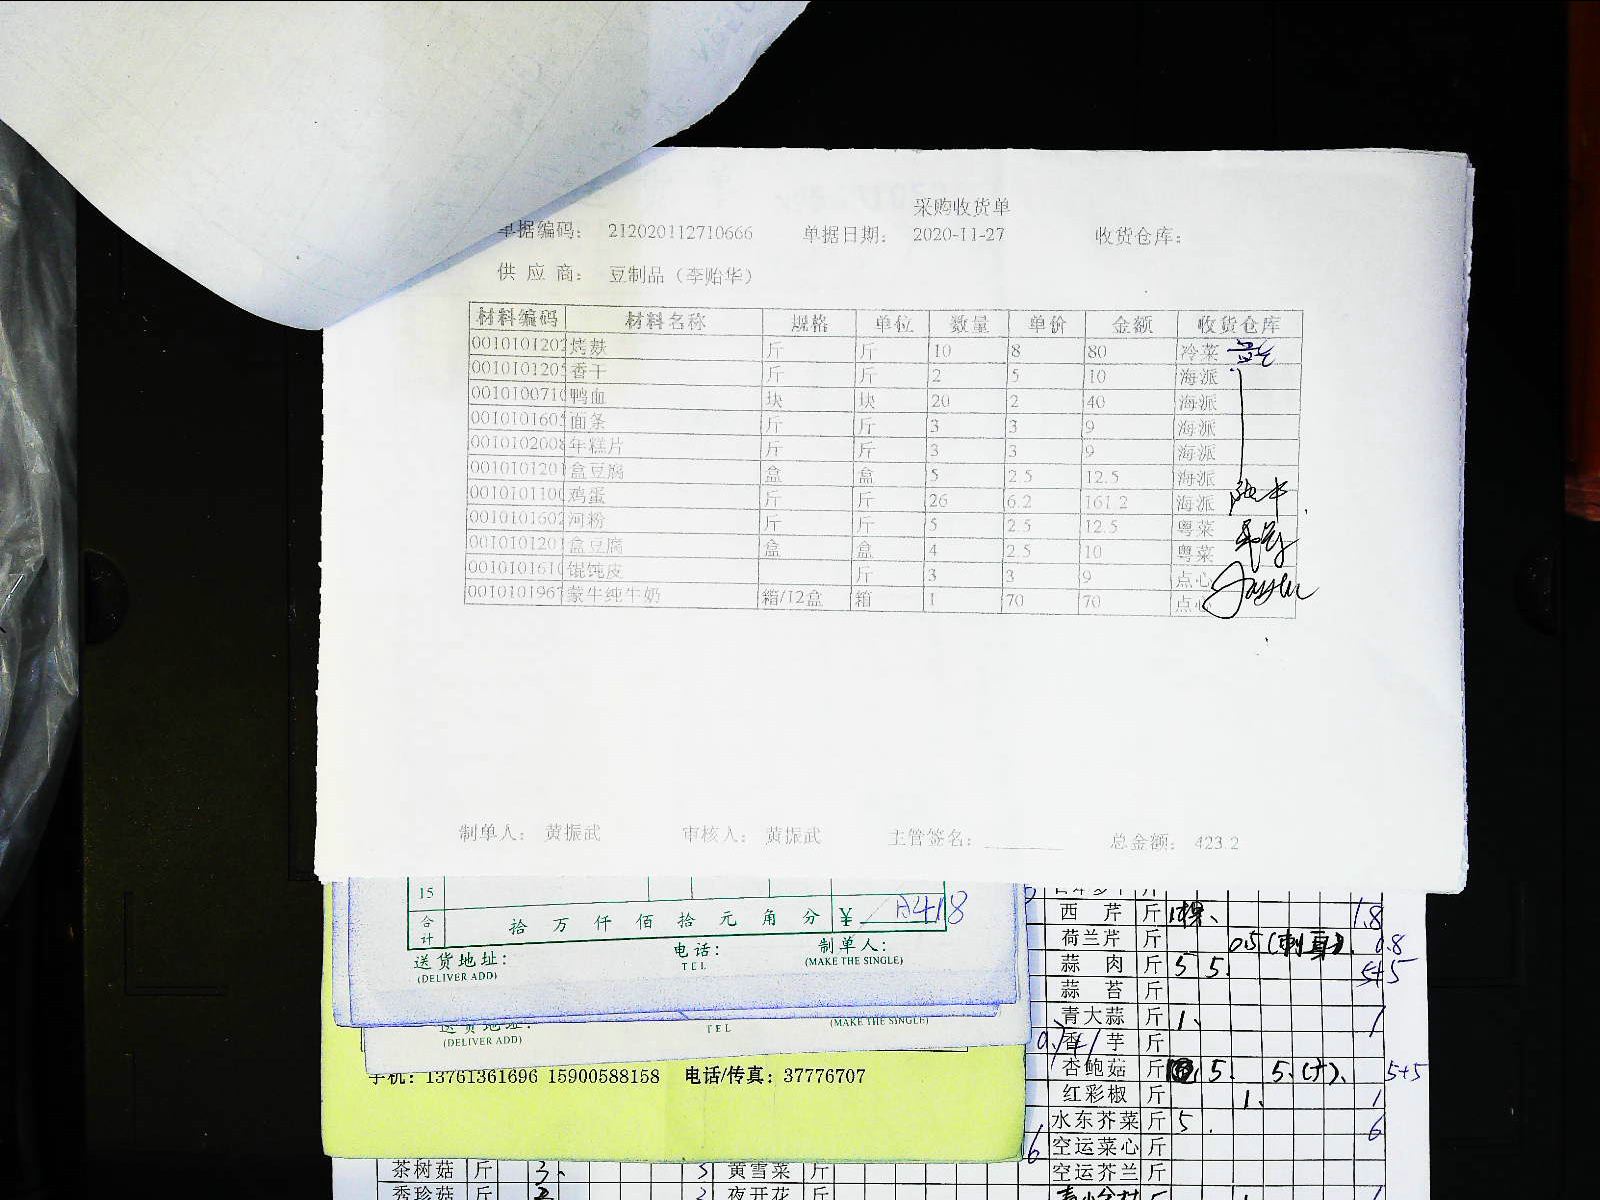 采购收货单
单据编码： 212020112710666 单据日期： 2020-11-27 收货仓库：
供 应 商： 豆制品（李贻华）
材料编码 材料名称 规格 单位 数量 单价 金额 收货仓库
0010101202 烤麸 斤 斤 10 8 80 冷菜
0010101205 香干 斤 斤 2 5 10 海派
0010100710 鸭血 块 块 20 2 40 海派
0010101605 面条 斤 斤 3 3 9 海派
0010102008 年糕片 斤 斤 3 3 9 海派
0010101201 盒豆腐 盒 盒 5 2.5 12.5 海派
0010101100 鸡蛋 斤 斤 26 6.2 161.2 海派
0010101602 河粉 斤 斤 5 2.5 12.5 粤菜
0010101201 盒豆腐 盒 盒 4 2.5 10 粤菜
0010101610 馄饨皮 斤 3 3 9 点心
0010101967 蒙牛纯牛奶 箱/12盒 箱 1 70 70 点心
制单人： 黄振武 审核人： 黄振武 主管签名： 总金额： 423.2
15
合计 拾 万 仟 佰 拾 元 角 分 ¥ 418
送货地址： 电话： 制单人：
(DELIVER ADD) TEL (MAKE THE SINGLE)
送货地址：
(DELIVER ADD) TEL (MAKE THE SINGLE)
手机：13761361696 15900588158 电话/传真：37776707
西 芹 斤 1.8
荷兰芹 斤 0.5 0.8
蒜 肉 斤 5 5 5+5
蒜 苔 斤
青大蒜 斤 1、 1
香 芋 斤
杏鲍菇 斤 5. 5. 5+5
红彩椒 斤 1、 1
水东芥菜 斤 5. 6
空运菜心 斤
空运芥兰 斤
茶树菇 斤 3、 3 黄雪菜 斤
秀珍菇 斤 2 夜开花 斤